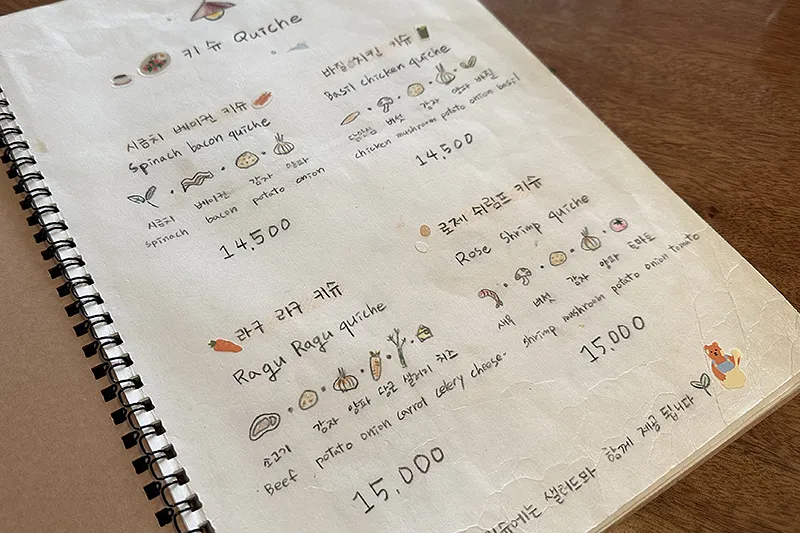 키슈 Quiche
시금치 베이컨 키슈
Spinach bacon quiche
시금치 베이컨 감자 양파
spinach bacon potato onion
14,500
바질 치킨 키슈
Basil chicken quiche
닭안심 버섯 감자 양파 바질
chicken mushroom potato onion basil
14,500
라구 라구 키슈
Ragu Ragu quiche
소고기 감자 양파 당근 샐러리 치즈
Beef potato onion carrot celery cheese
15,000
로제 쉬림프 키슈
Rose Shrimp quiche
새우 버섯 감자 양파 토마토
shrimp mushroom potato onion tomato
15,000
샐러드와 함께 제공됩니다